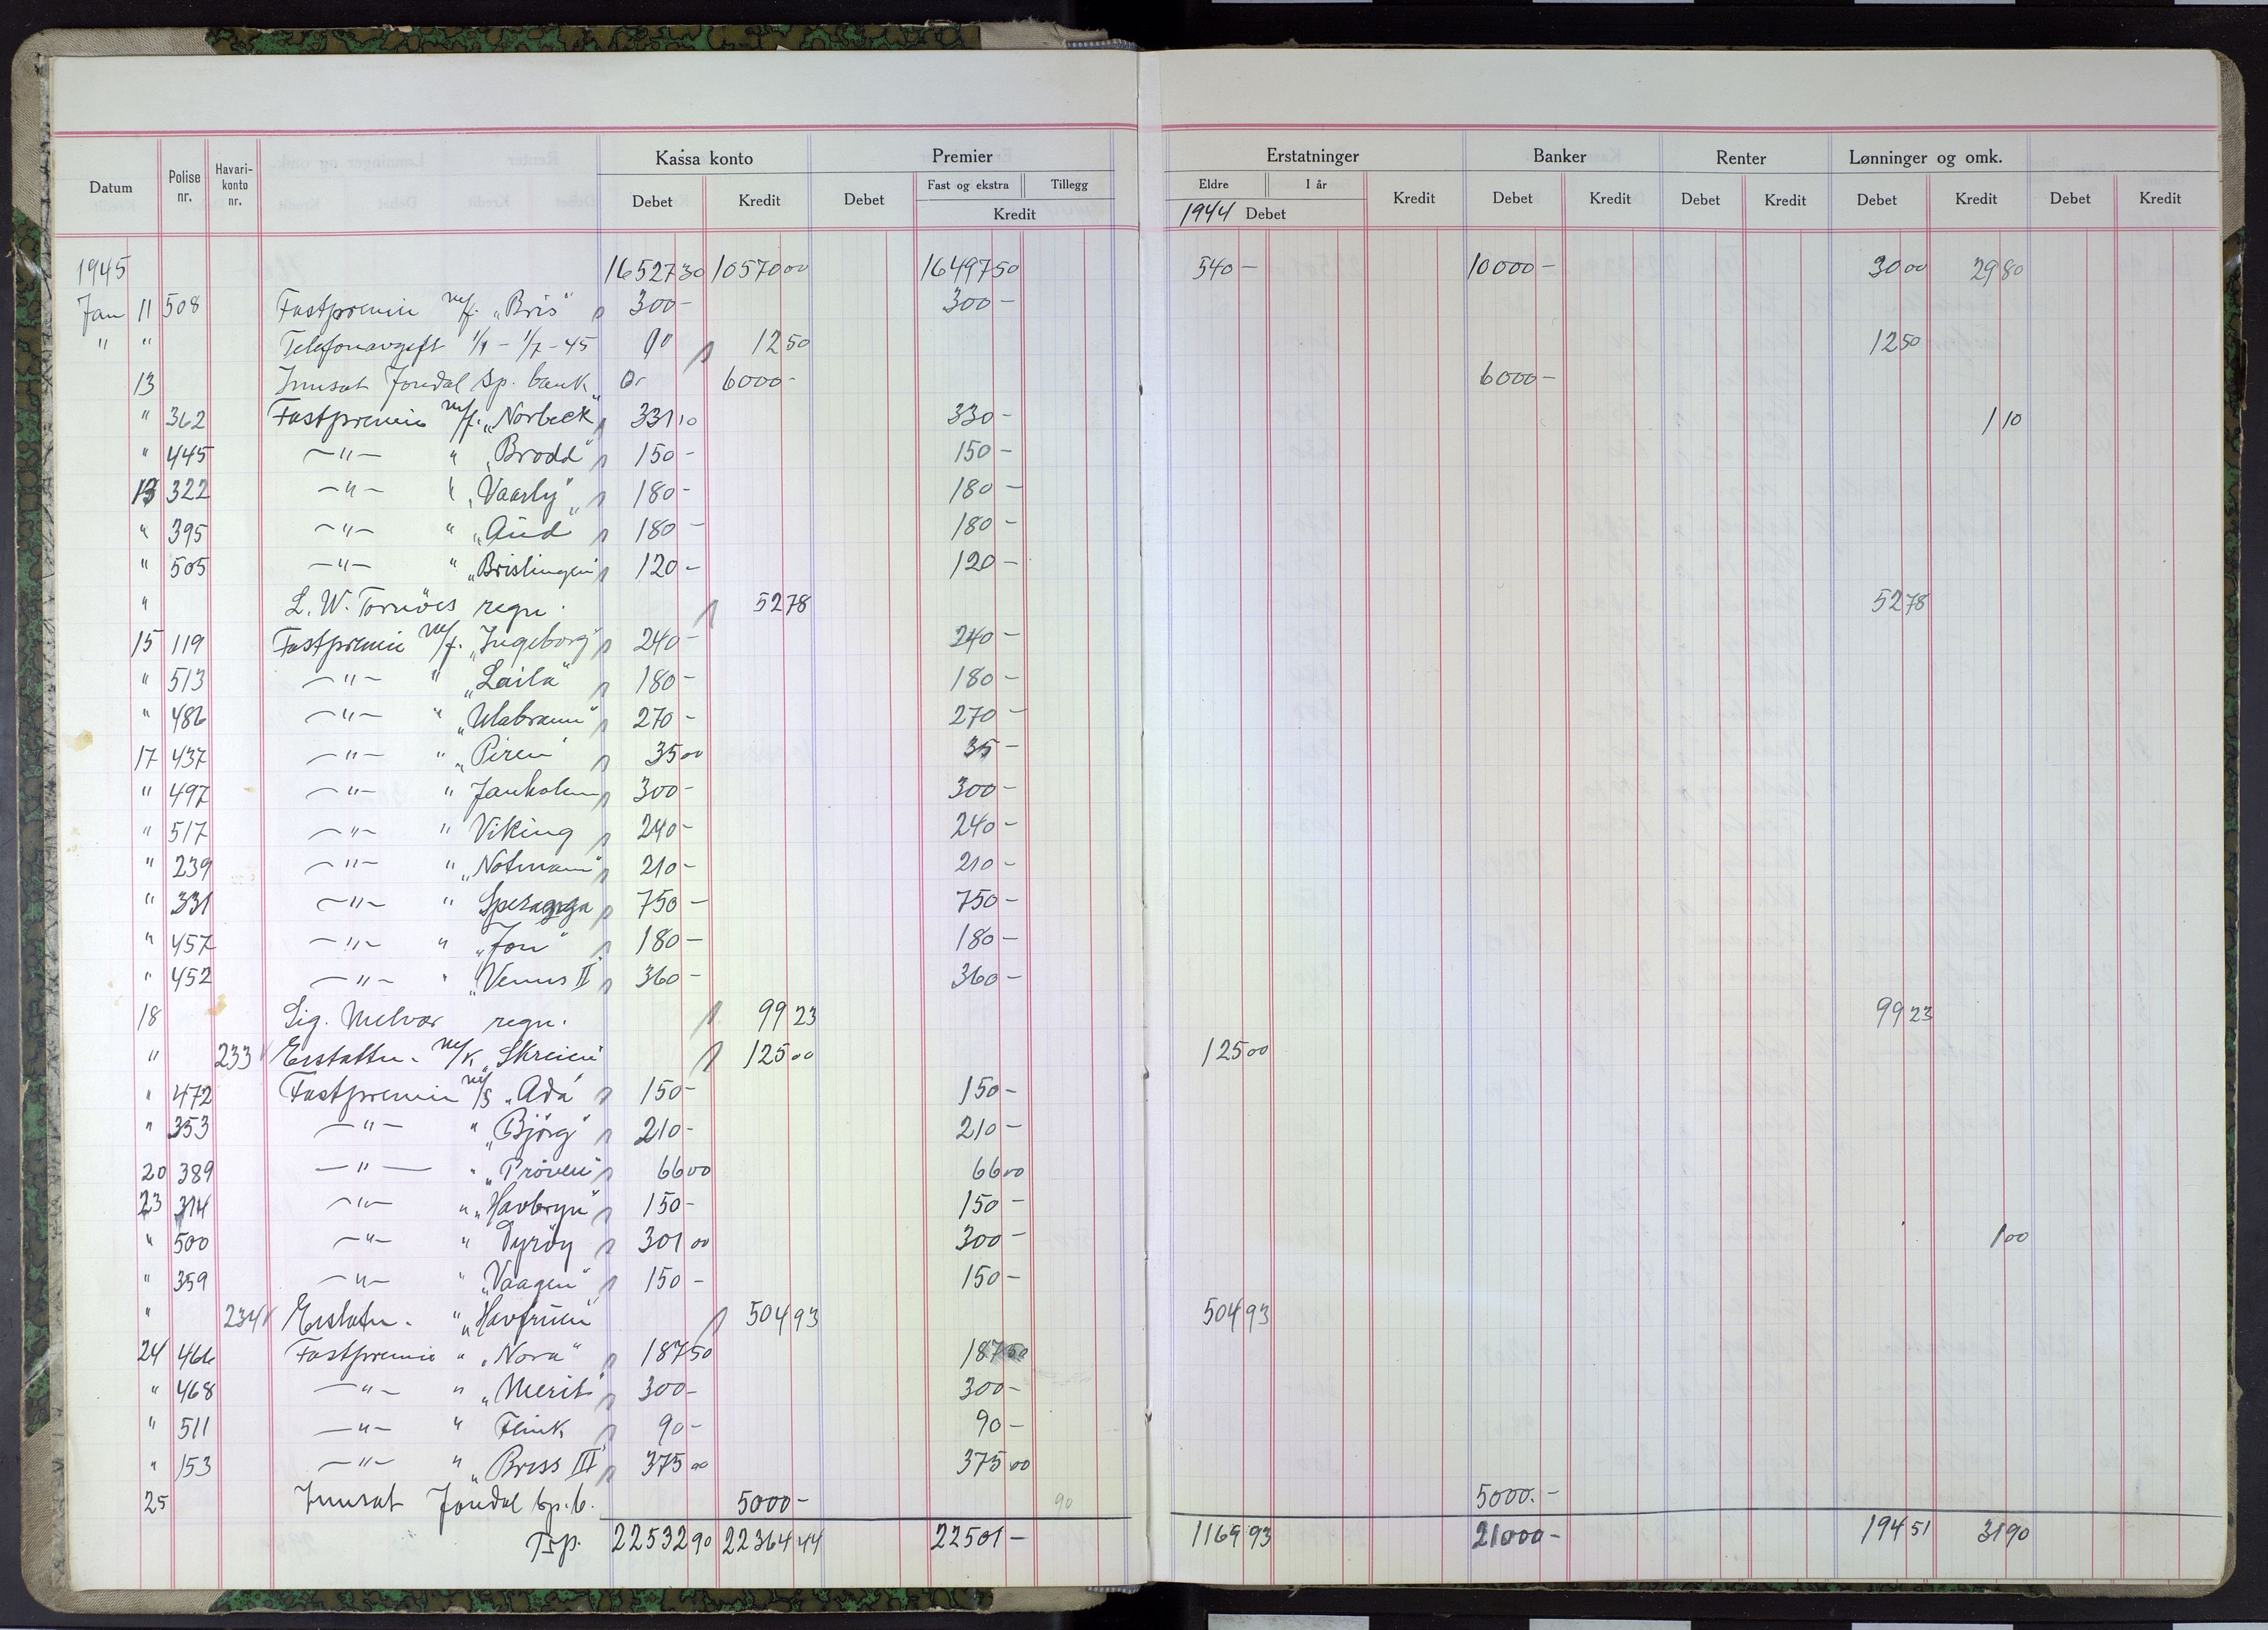 Kassa konto Premier Erstatninger Banker Renter Lønninger og omk.
Datum Polise nr. Havari-konto nr. Debet Kredit Debet Fast og ekstra Tillegg Kredit Eldre I år 1944 Debet Kredit Debet Kredit Debet Kredit Debet Kredit Debet Kredit
1945 16527 30 10570 00 16497 50 540 - 10000 - 30 00 29 80
Jan 11 508 Fastpremie m/f. „Bris" 300 - 300 -
" " Telefonavgift 1/1 - 1/7 - 45 12 50 12 50
13 Innsat Jondal Sp. bank 6000 - 6000 -
" 362 Fastpremie m/f. „Norbeck" 331 10 330 - 1 10
" 445 -"- " „Brodd" 150 - 150 -
13 322 -"- " „Vaarly" 180 - 180 -
" 395 -"- " „Aud" 180 - 180 -
" 505 -"- " „Brislingen" 120 - 120 -
" L. W. Tornöes regn. 52 78 52 78
15 119 Fastpremie m/f. „Ingeborg" 240 - 240 -
" 513 -"- " „Laila" 180 - 180 -
" 486 -"- " „Ulabrann" 270 - 270 -
17 437 -"- " „Piren" 35 00 35 -
" 497 -"- " Jankolm 300 - 300 -
" 517 -"- " Viking 240 - 240 -
" 239 -"- " „Notmann" 210 - 210 -
" 331 -"- " 750 - 750 -
" 457 -"- " „Jon" 180 - 180 -
" 452 -"- " „Venus II 360 - 360 -
18 Sig. Melvær regn. 99 23 99 23
" 233 Erstattn. m/k „Skreien" 125 00 125 00
" 472 Fastpremie m/s „Ada" 150 - 150 -
" 353 -"- " „Björg" 210 - 210 -
20 389 -"- " „Pröven" 66 00 66 00
23 314 -"- " „Havbryn" 150 - 150 -
" 500 -"- " Dyröy 301 00 300 - 1 00
" 359 -"- " „Vaagen" 150 - 150 -
" 234 Erstatn. " „Havfruen" 504 93 504 93
24 466 Fastpremie " „Nora" 187 50 187 50
" 468 -"- " „Merit" 300 - 300 -
" 511 -"- " Flink 90 - 90 -
" 153 -"- " „Briss III" 375 00 375 00
25 Innsat Jondal sp.b. 5000 - 90 5000. -
Trp. 22532 90 22364 44 22501 - 1169 93 21000 - 194 51 31 90